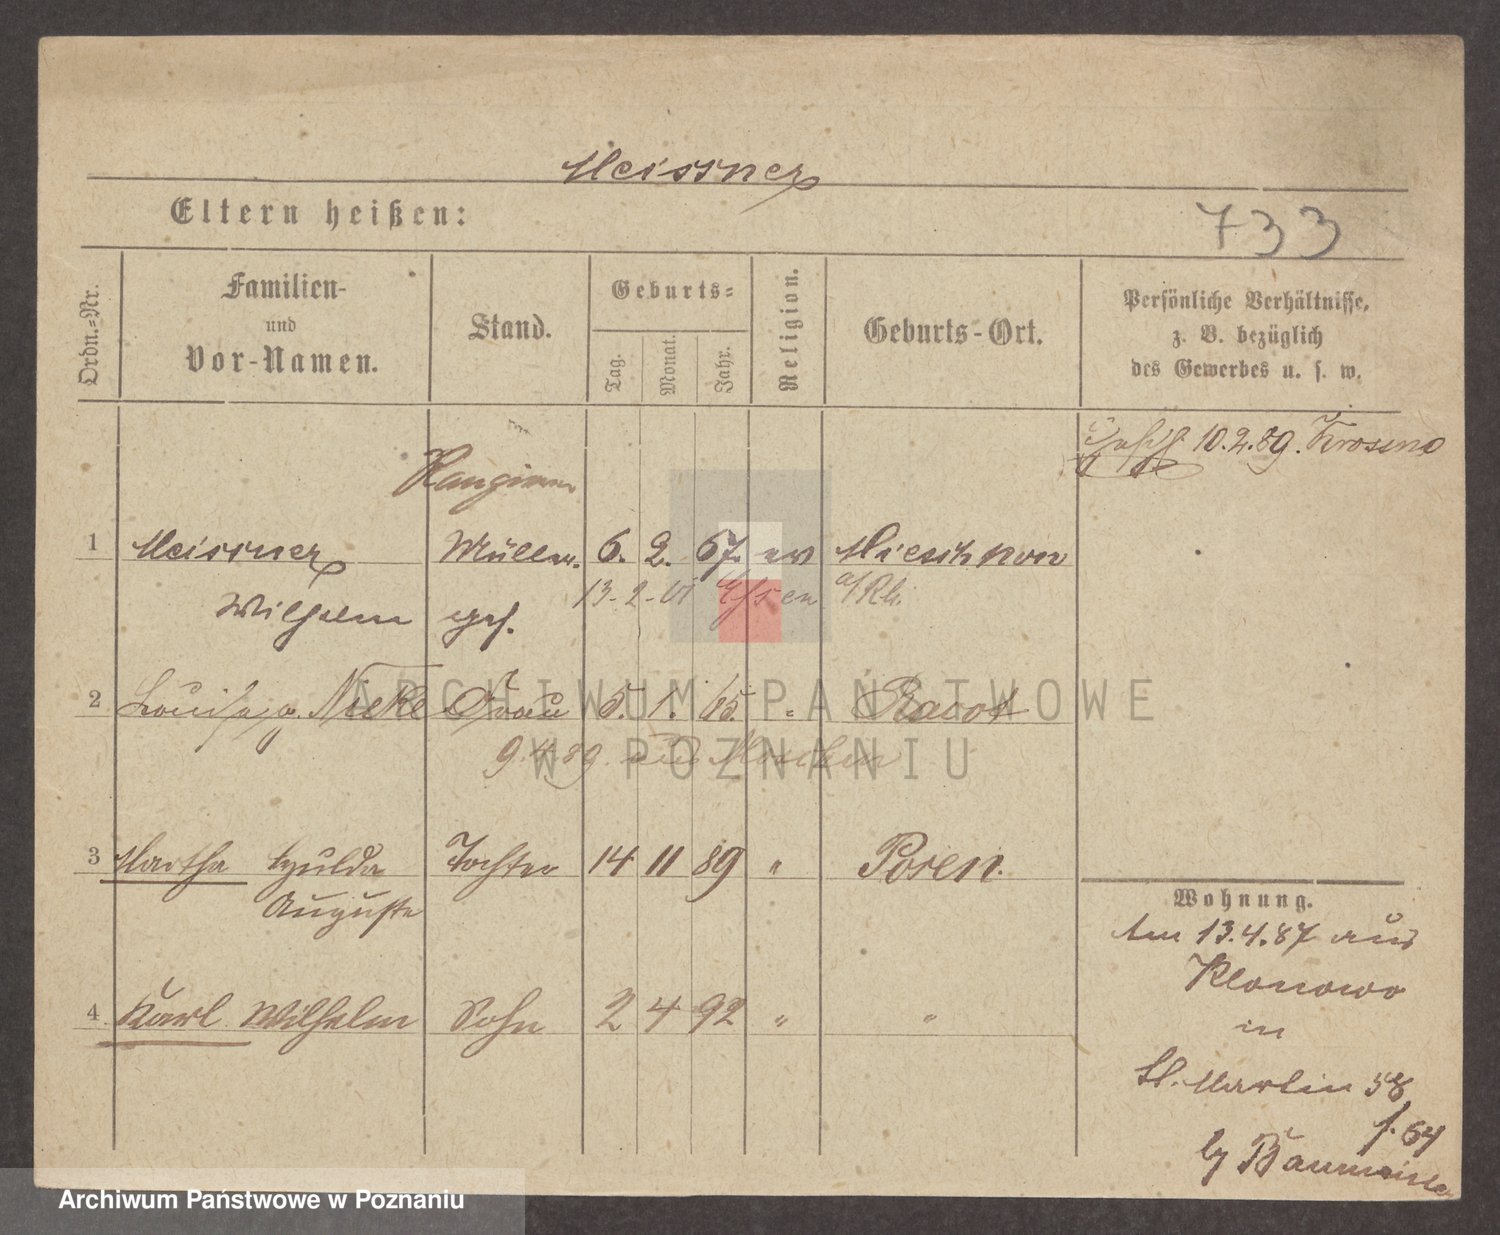 Meissner
Eltern heißen:
733
Ordn.=Nr.
Familien-
und
Vor-Namen.
Stand.
Geburts=
Tag.
Monat.
Jahr.
Religion.
Geburts-Ort.
Persönliche Verhältnisse,
z. B. bezüglich
des Gewerbes u. s. w.
10.2.89. Krosno
Rangierer
1 Meissner Müller. 6. 2. 67. ev
13-2-01 Essen a/Rh.
Wilhelm
2 Louise g. Nicke Frau 5. 1. 65. " Racot
9.4.89. aus
3 Martha Hulda Tochter 14 11 89 " Posen.
Auguste
4 Karl Wilhelm Sohn 2 4 92 " "
Wohnung.
Am 13.4.87 aus
Klonowo
in
St. Martin 58
f. 64
ARCHIWUM PAŃSTWOWE
W POZNANIU
Archiwum Państwowe w Poznaniu